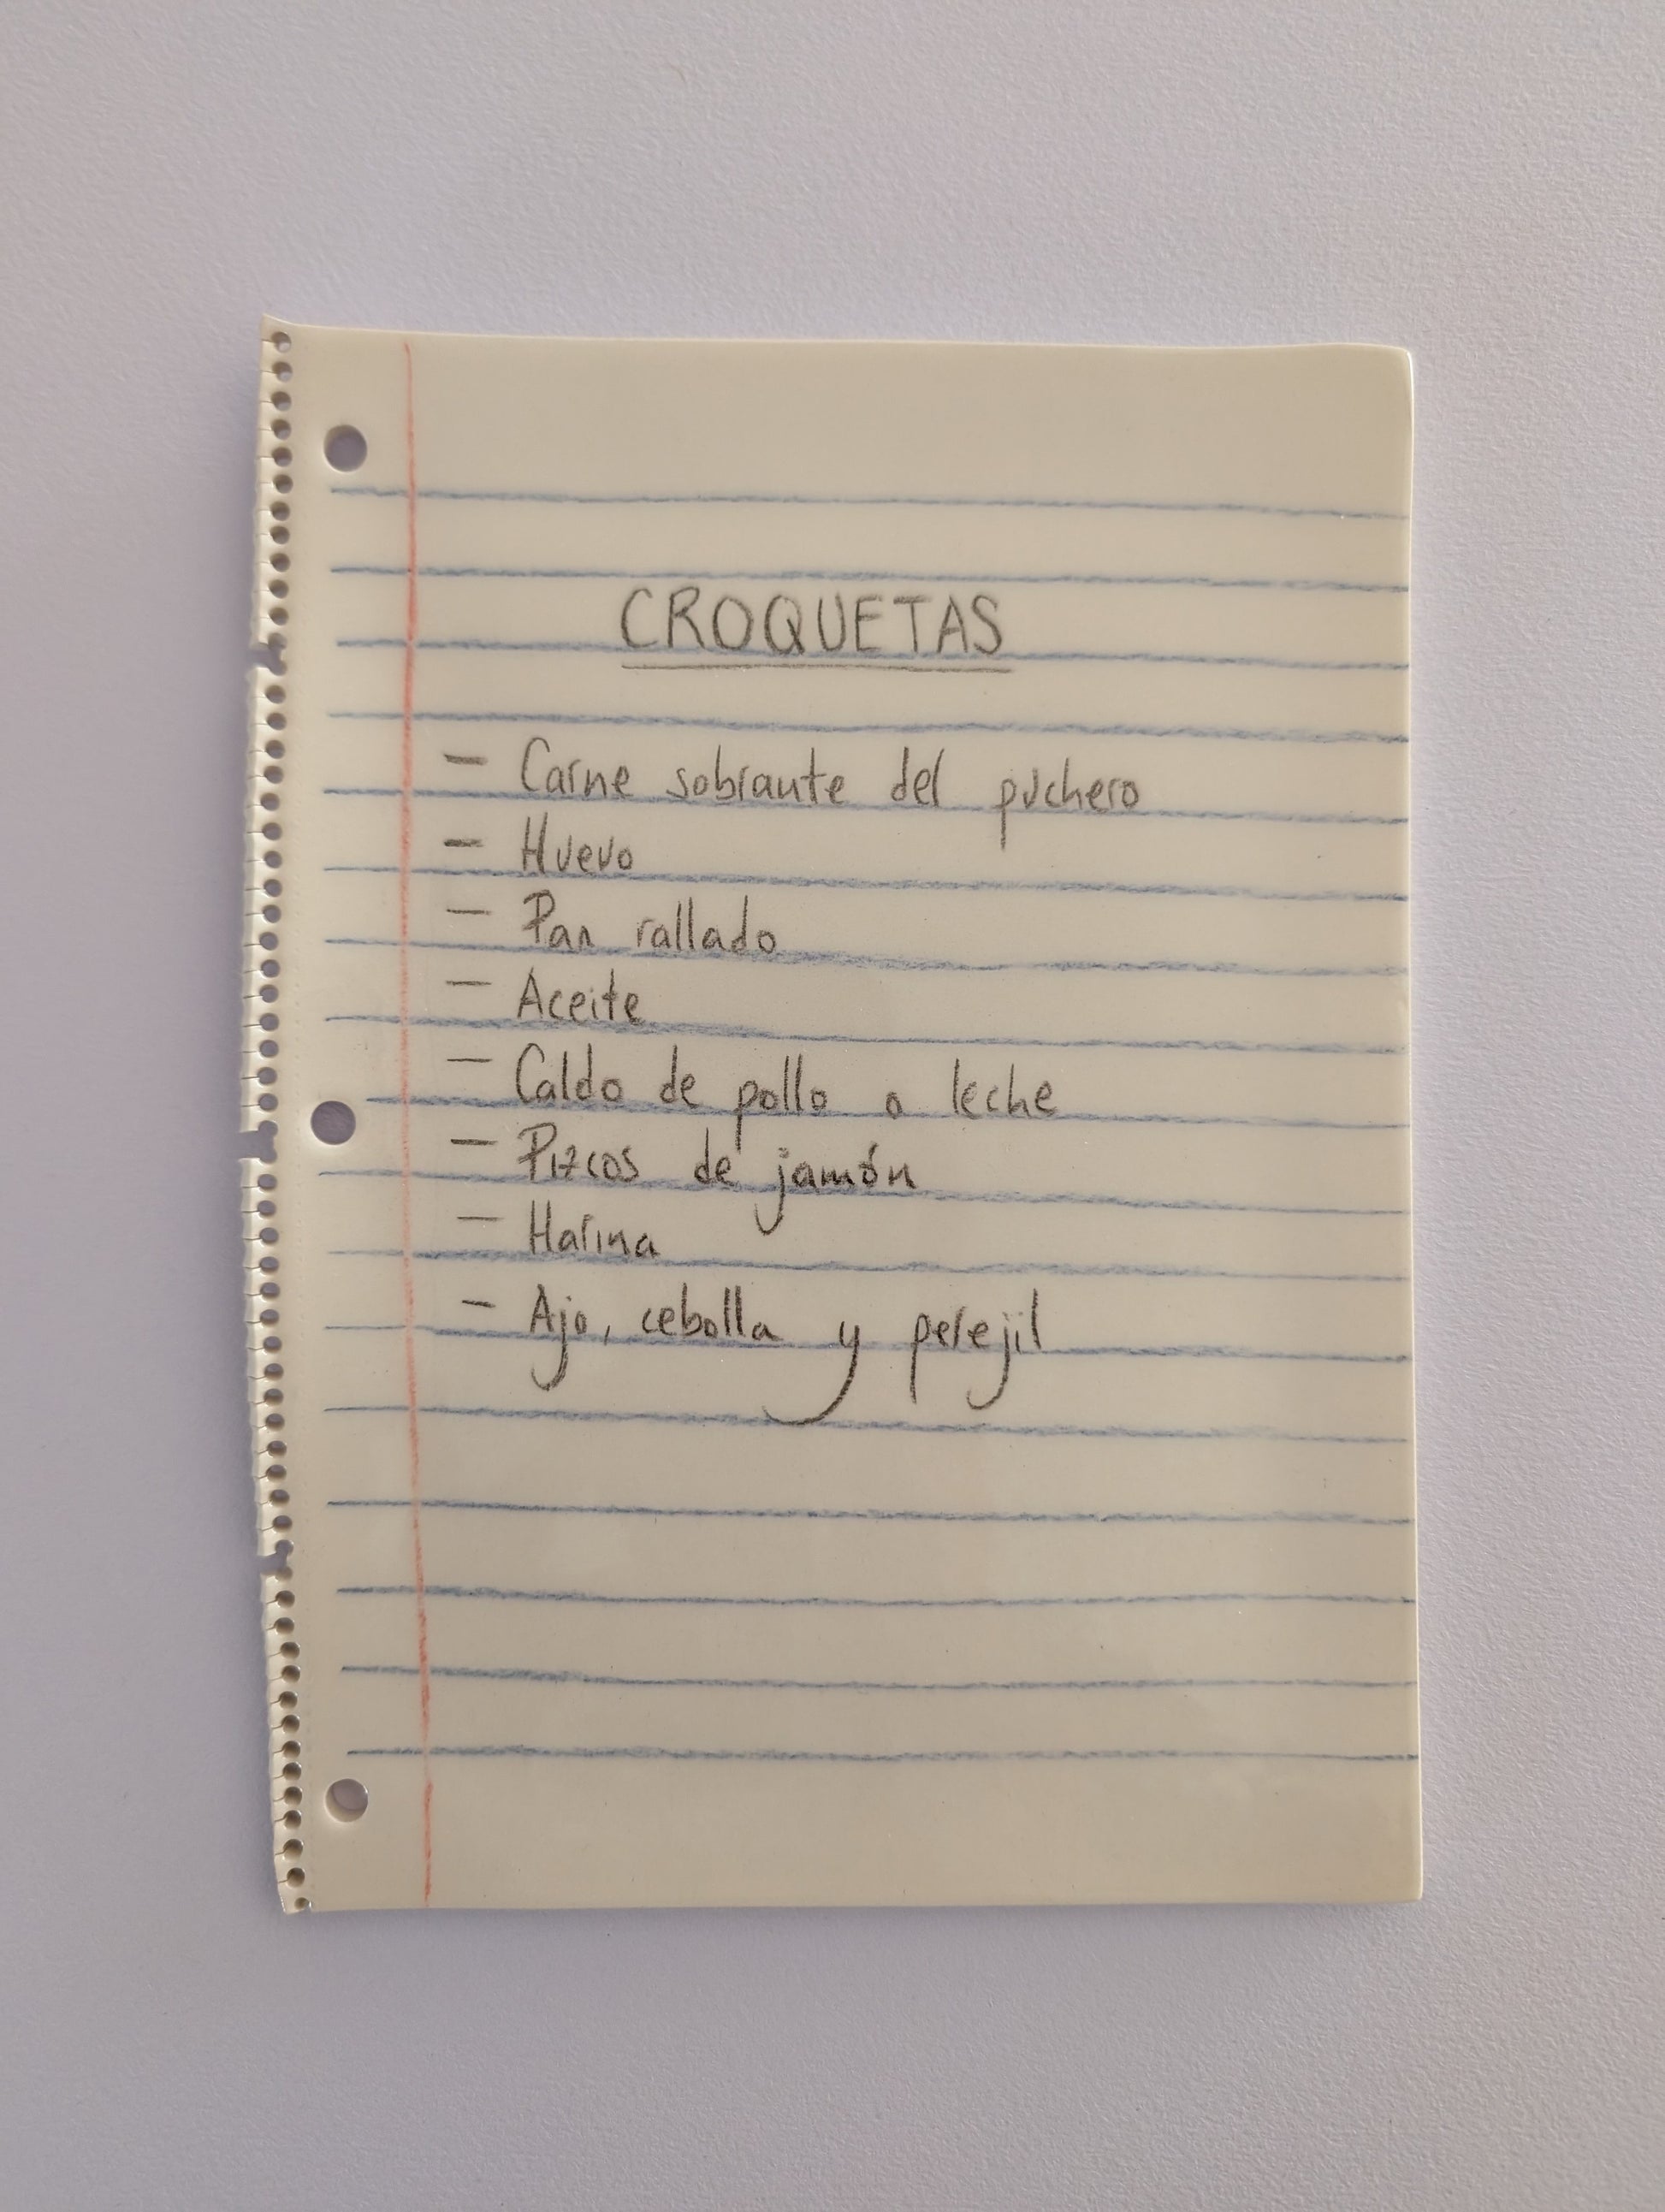 CROQUETAS
- Carne sobrante del puchero
- Huevo
- Pan rallado
- Aceite
- Caldo de pollo o leche
- Pizcos de jamón
- Harina
- Ajo, cebolla y perejil